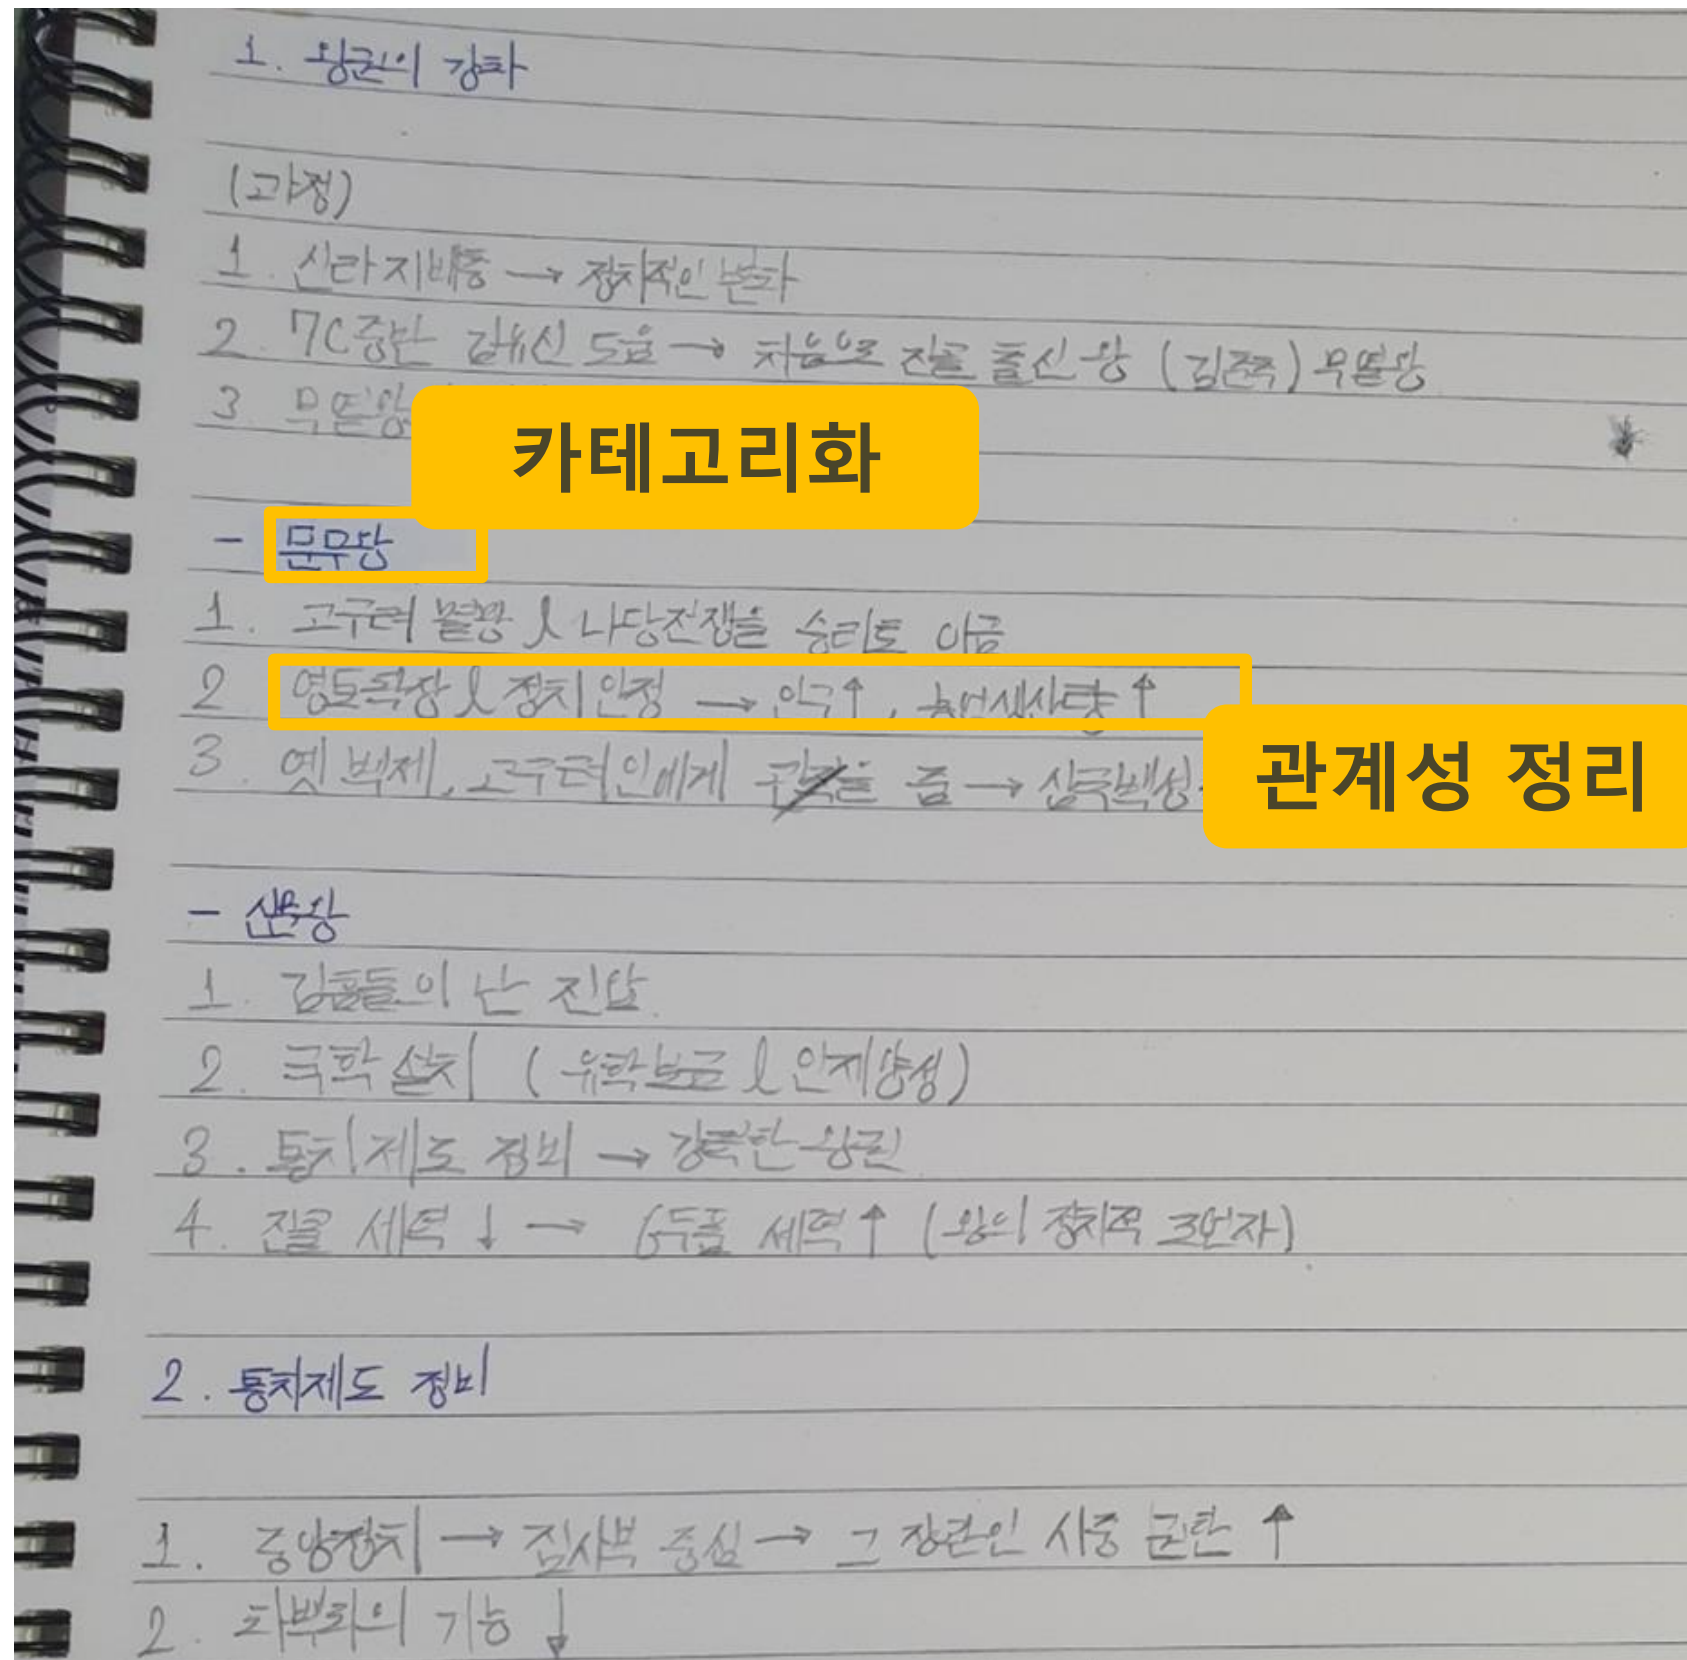 1. 왕권의 강화
(과정)
1. 신라 지배층 → 정치적인 변화
2. 7C중반 김유신 도움 → 처음으로 진골 출신 왕 (김춘추) 무열왕
3. 무열왕
카테고리화
- 문무왕
1. 고구려 멸망 & 나당전쟁을 승리로 이끔
2 영토확장 & 정치 안정 → 인구↑, 농업생산량↑
3. 옛 백제, 고구려인에게 관직을 줌 → 삼국백성
관계성 정리
- 신문왕
1. 김흠돌의 난 진압.
2. 국학 설치 (유학보급 & 인재양성)
3. 통치제도 정비 → 강력한 왕권
4. 진골 세력↓ → 6두품 세력↑ (왕의 정치적 조언자)
2. 통치제도 정비
1. 중앙정치 → 집사부 중심 → 그 장관인 시중 권한 ↑
2. 화백회의 기능 ↓